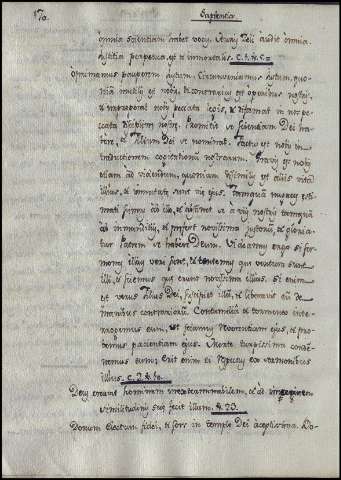 170. Sapientia.
omnia scientiam habet vocis. Auris Dei audit omnia
justitia perpetua est et immortalis. C. 1. &
opprimamus pauperem justum. Circumveniamus justum, quo-
niam inutilis est nobis, et contrarius est operibus nostris,
et improperat nobis peccata legis, et diffamat in nos pe-
ccata disciplinæ nostræ. Promittit se scientiam Dei ha-
bere, et filium Dei se nominat. Factus est nobis in
traductionem cogitationum nostrarum. Gravis est nobis
etiam ad videndum, quoniam dissimilis est aliis vita
illius, et immutatæ sunt viæ ejus. Tamquam nugaces esti-
mati sumus ab illo, et abstinet se a viis nostris tamquam
ab immunditiis, et præfert novissima justorum, et gloria-
tur Patrem se habere Deum. Videamus ergo si ser-
mones illius veri sint, et tentemus quæ ventura sunt
illi, et sciemus quæ erunt novissima illius. Si enim
est verus filius Dei, suscipiet illum, et liberabit eum de
manibus contrariorum. Contumelia et tormento inte-
rrogemus eum, ut sciamus reverentiam ejus, et pro-
bemus patientiam ejus. Morte turpissima conde-
mnemus eum; erit enim ei respectus ex sermonibus
illius. C. 2. &
Deus creavit hominem inexterminabilem, et ad imaginem
similitudinis suæ fecit illum. & 23.
Donum electum fidei, et sors in templo Dei aceptissima. Do-